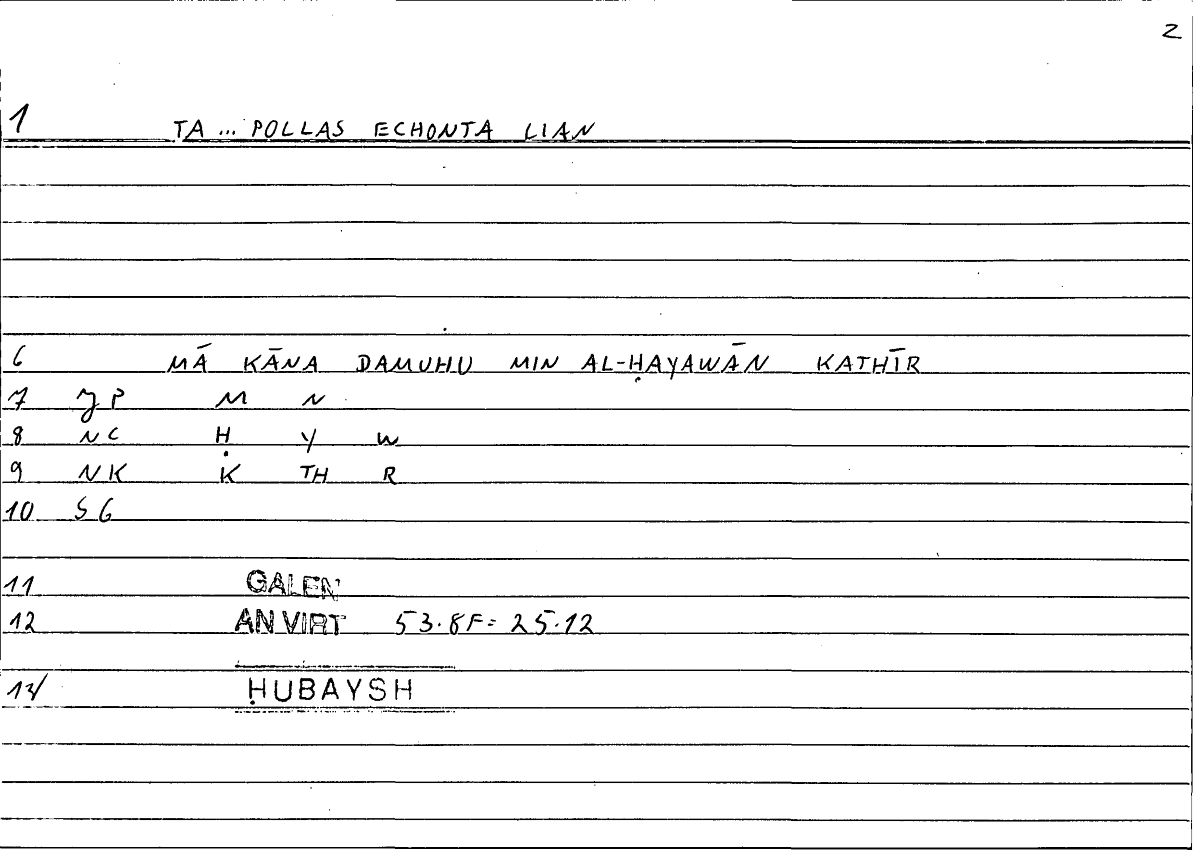 2
1 TA ... POLLAS ECHONTA LIAN
6 MĀ KĀNA DAMUHU MIN AL-ḤAYAWĀN KATHĪR
7 JP M N
8 NC Ḥ Y W
9 NK K TH R
10 SG
11 GALEN
12 AN VIRT 53.8F = 25.12
13/ ḤUBAYSH